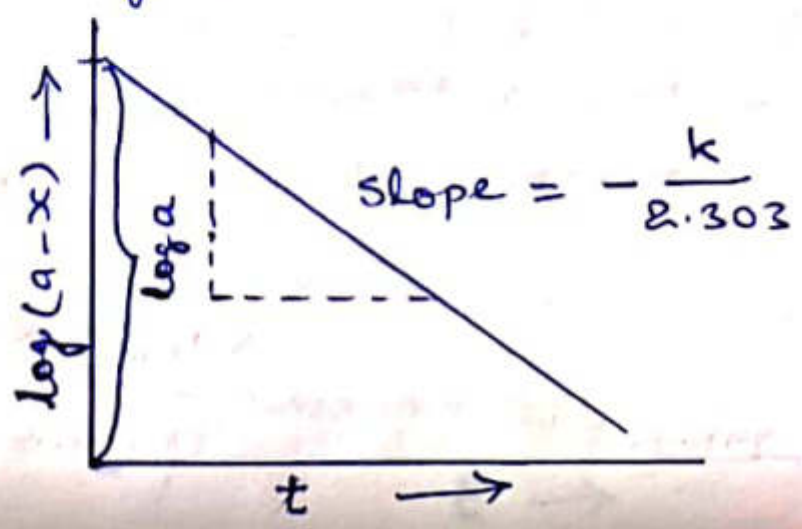 log(a-x) →
log a
slope = - k / 2.303
t →